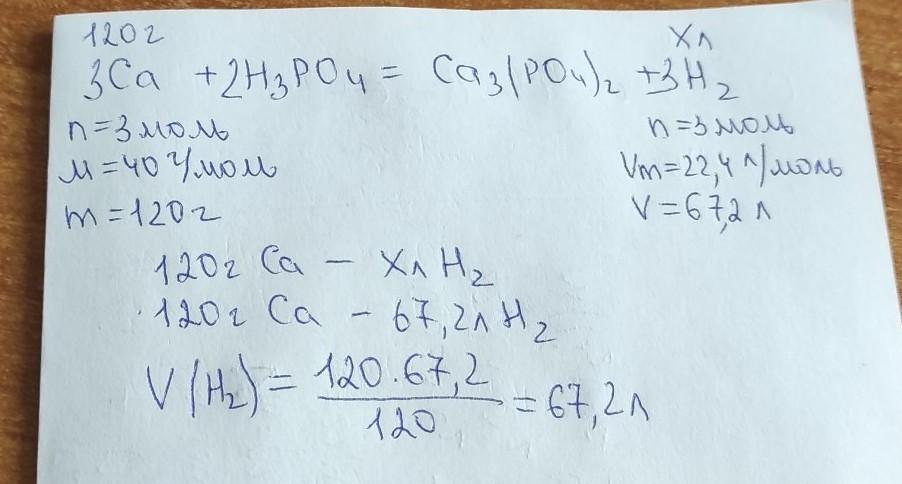 120г
Xл
3Ca + 2H₃PO₄ = Ca₃(PO₄)₂ + 3H₂
n=3моль
n=3моль
M=40г/моль
Vm=22,4л/моль
m=120г
V=67,2л
120г Ca – Xл H₂
120г Ca – 67,2л H₂
V(H₂) = 120·67,2 / 120 = 67,2л